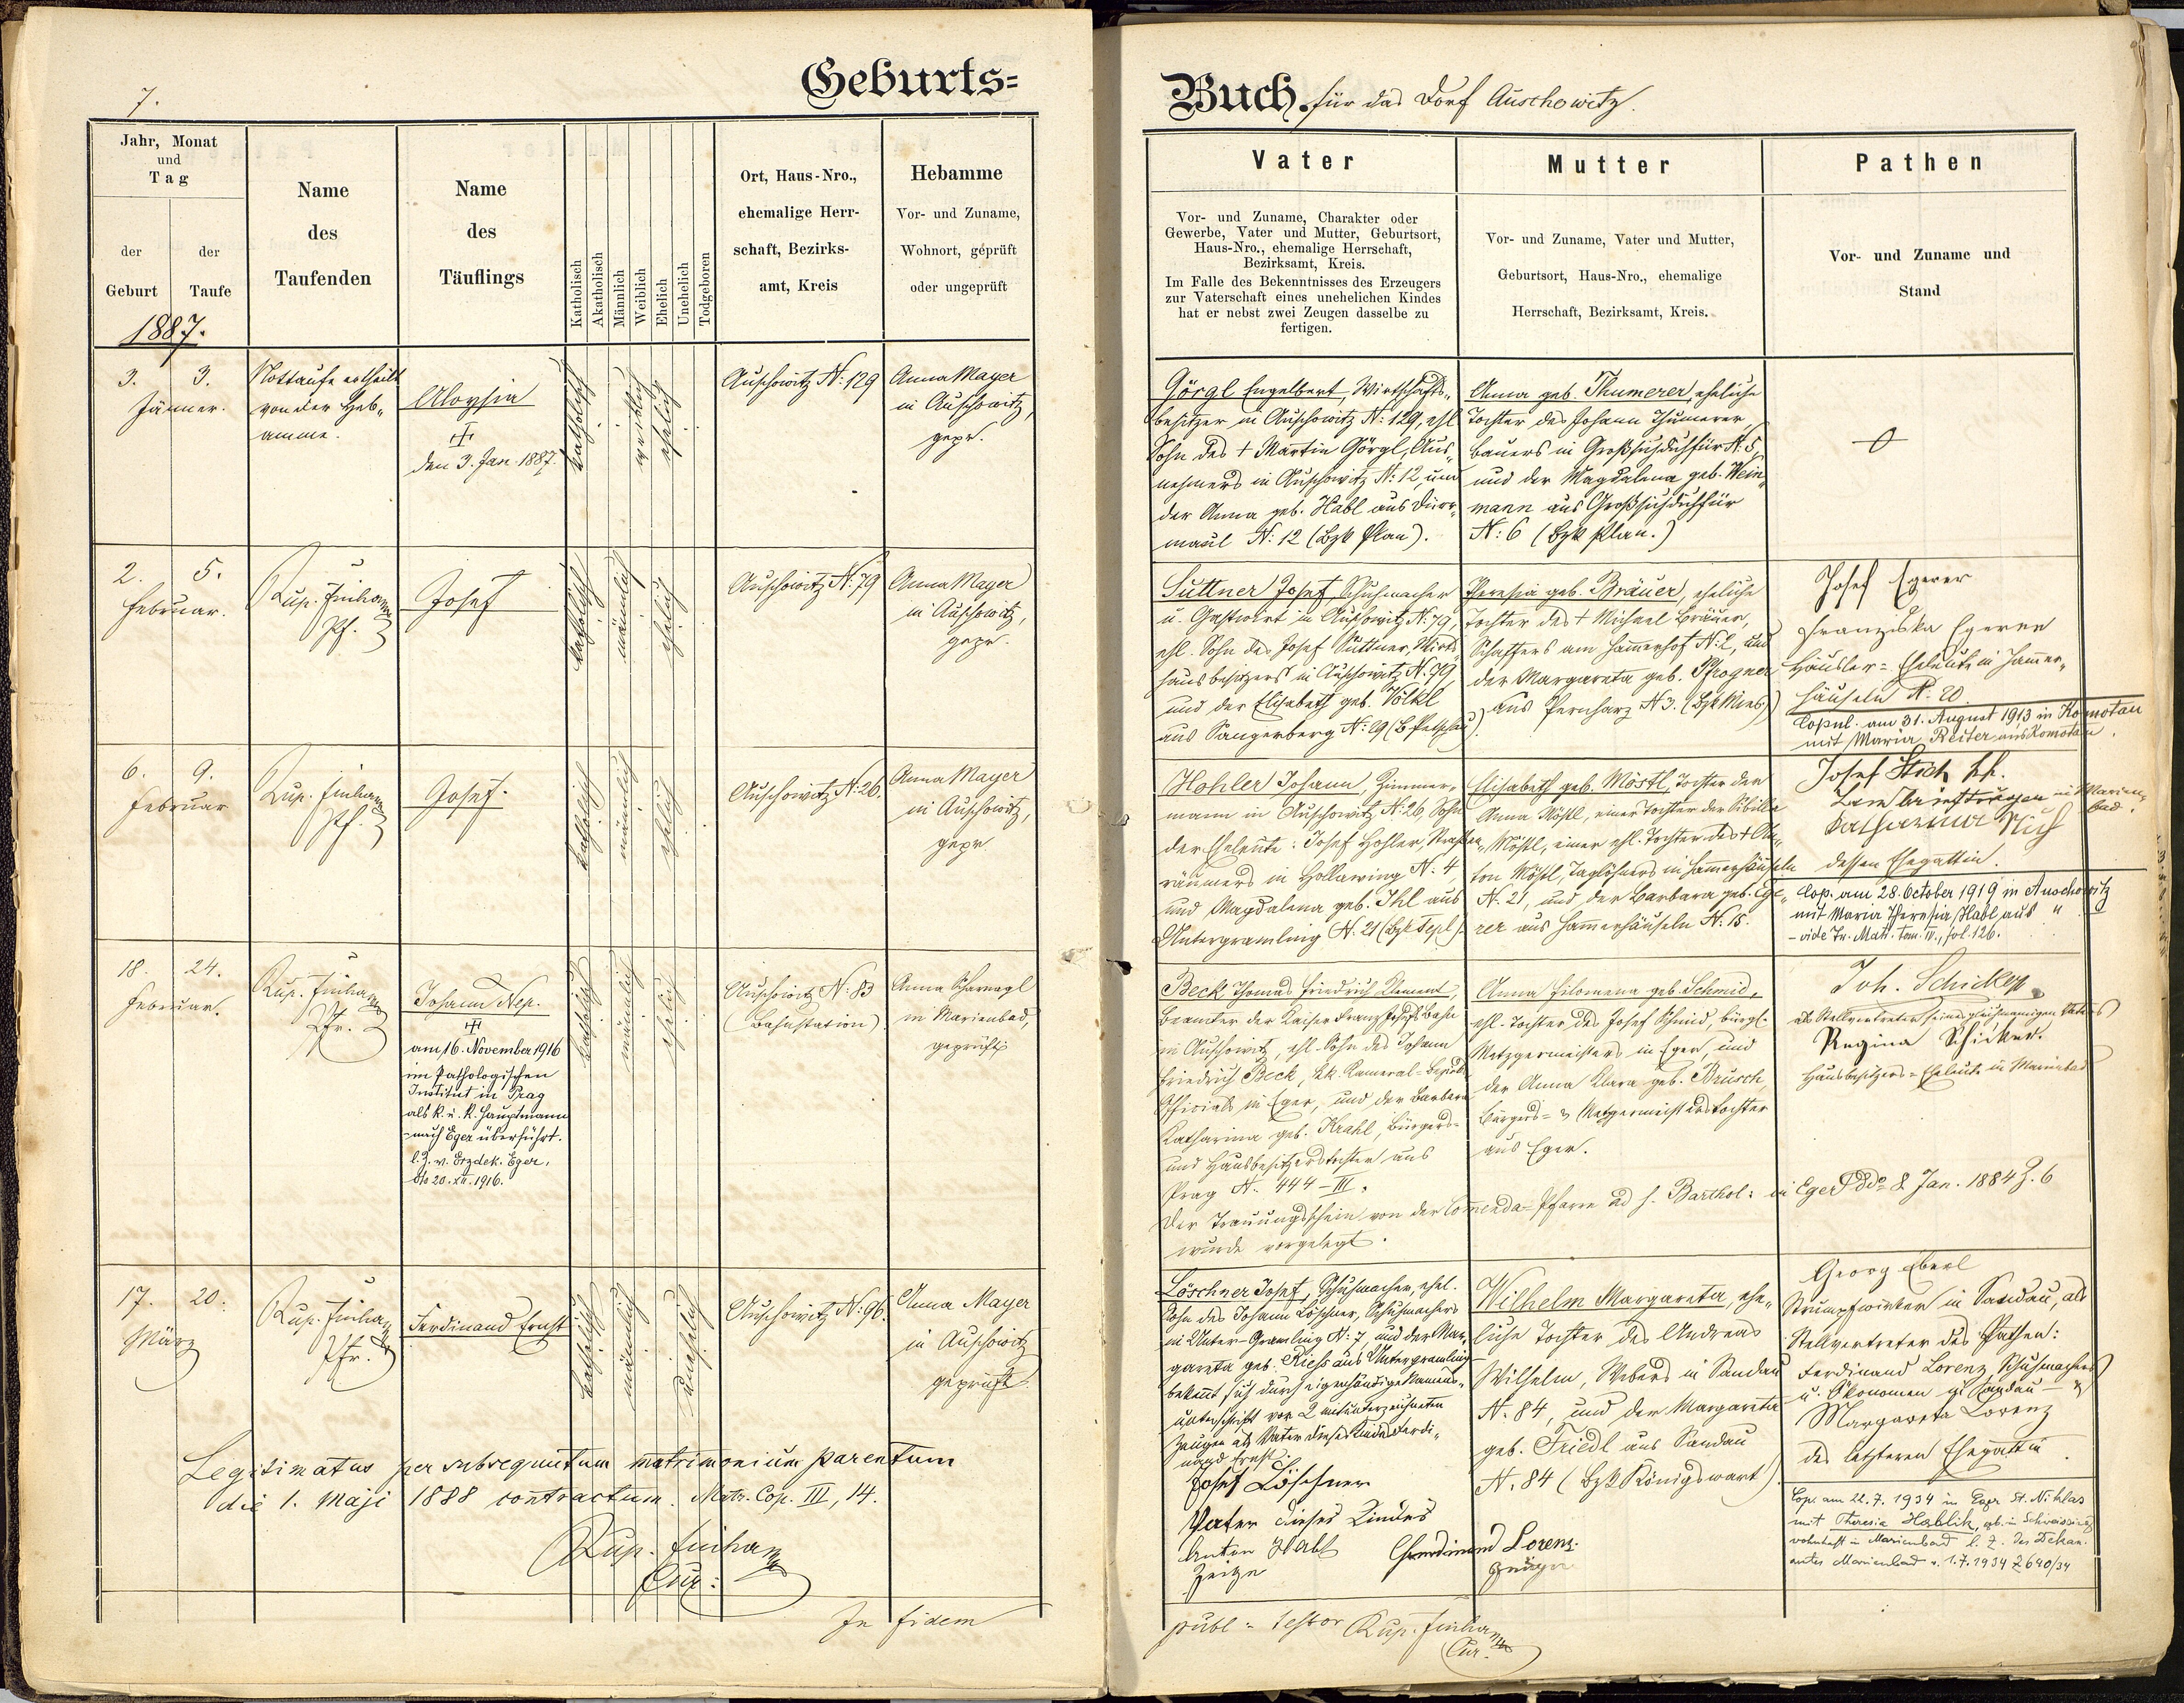 7.
Geburts=
Jahr, Monat
und
Tag
der
Geburt
der
Taufe
1887.
Name
des
Taufenden
Name
des
Täuflings
Katholisch
Akatholisch
Männlich
Weiblich
Ehelich
Unehelich
Todgeboren
Ort, Haus-Nro.,
ehemalige Herr-
schaft, Bezirks-
amt, Kreis
Hebamme
Vor- und Zuname,
Wohnort, geprüft
oder ungeprüft
3. 3.
Jänner.
Nottaufe ertheilt
von der Heb„
amme.
Aloysia
den 3. Jan. 1887.
katholisch
weiblich
ehelich
Auschowitz N: 129
Anna Mayer
in Auschowitz,
gepr.
2. 5.
Februar.
Rup.
Pf.
Josef
katholisch
männlich
ehelich
Auschowitz N: 79
Anna Mayer
in Auschowitz,
gepr.
6. 9.
Februar
Rup.
Pf.
Josef.
katholisch
männlich
ehelich
Auschowitz N: 26.
Anna Mayer
in Auschowitz,
gepr.
18. 24.
Februar.
Rup.
Pfr.
Johann Nep.
am 16. November 1916
im Pathologischen
Institut in Prag
als k. u. k. Hauptmann
nach Eger überführt.
l. Z. v. Erzdek. Eger,
dto 20. XII. 1916.
katholisch
männlich
ehelich
Auschowitz N: 83
(Bahnstation)
Anna Scharnagl
in Marienbad,
geprüft
17. 20.
März
Rup.
Pfr.
Ferdinand Ernst
katholisch
männlich
unehelich
Auschowitz N: 96.
Anna Mayer
in Auschowitz
geprüft.
Legitimatus per subsequutum matrimonium parentum
die 1. Maji 1888 contractum. Matr. Cop. III, 14.
Rup.
Cur:
In fidem
Buch. für das Dorf Auschowitz.
Vater
Vor- und Zuname, Charakter oder
Gewerbe, Vater und Mutter, Geburtsort,
Haus-Nro., ehemalige Herrschaft,
Bezirksamt, Kreis.
Im Falle des Bekenntnisses des Erzeugers
zur Vaterschaft eines unehelichen Kindes
hat er nebst zwei Zeugen dasselbe zu
fertigen.
Mutter
Vor- und Zuname, Vater und Mutter,
Geburtsort, Haus-Nro., ehemalige
Herrschaft, Bezirksamt, Kreis.
Pathen
Vor- und Zuname und
Stand
Görgl Engelbert, Wirthschafts„
besitzer in Auschowitz N: 129, ehl
Sohn des + Martin Görgl, Aus„
nehmers in Auschowitz N: 12, und
der Anna geb. Habl aus Dürr„
maul N: 12 (Bzk Plan).
Anna geb. Thumerer, eheliche
Tochter des Johann Thumerer,
Bauers in N: 5,
und der Magdalena geb. Wein„
mann aus
N: 6 (Bzk Plan.)
Suttner Josef, Schuhmacher
u. Gastwirt in Auschowitz N: 79,
ehl. Sohn des Josef Suttner, Wirts„
hausbesitzers in Auschowitz N. 79
und der Elisabeth geb. Völkl
aus Sangerberg N: 29 (B. Petschau).
Theresia geb. Bräuer, eheliche
Tochter des + Michael Bräuer,
Schaffers am Hammerhof N: 2, und
der Margareta geb. Pfrogner
aus Pernharz N 3. (Bzk Mies)
Josef Egerer
Franziska Egerer
Häusler= Eheleute in Hammer„
häuseln N: 20.
Copul. am 31. August 1913 in Komotau
mit Maria Reiter aus Komotau.
Hohler Johann, Zimmer„
mann in Auschowitz N: 26, Sohn
der Eheleute: Josef Hohler, Straßen„
räumers in Hollewing N: 4,
und Magdalena geb. Ihl aus
Untergramling N. 21 (Bzk Tepl).
Elisabeth geb. Möstl, Tochter der
Anna Möstl, einer Tochter der Sibilla
Möstl, einer ehl. Tochter des + An„
ton Möstl, Taglöhners in Hammerhäuseln
N. 21, und der Barbara geb. Ege„
rer aus Hammerhäuseln N: 15.
Josef Stich kk.
Landbriefträger in Marien„
bad.
Katharina Stich
dessen Ehegattin.
Cop. am 28. October 1919 in Auschowitz
mit Maria Theresia Habl aus "
- vide Tr. Matr. tom. IV., fol. 126.
Beck Thomas Friedrich Klement,
Beamter der Kaiser Franz Josefs Bahn
in Auschowitz, ehl. Sohn des Johann
Friedrich Beck, kk. Kameral-Bezirks
Officials in Eger, und der Barbara
Katharina geb. Krahl, Bürgers-
und Hausbesitzerstochter aus
Prag N. 444-III.
Der Trauungsschein von der Comenda-Pfarre ad s. Barthol: in Eger ddo 8. Jan. 1884 Z. 6
wurde vorgelegt.
Anna Filomena geb. Schmid,
ehl. Tochter des Josef Schmid, bürgl.
Metzgermeisters in Eger, und
der Anna Klara geb. Brusch,
Bürgers- & Metzgermeisterstochter
aus Eger.
Joh. Schicker
als Stellvertreter seines gleichnamigen Vaters
Regina Schicker.
Hausbesitzers-Eheleute in Marienbad
Löschner Josef, Schuhmacher, ehel.
Sohn des Johann Löschner, Schuhmachers
in Unter-Gramling N: 7, und der Mar„
gareta geb. Riess aus Untergramling
bekennt sich durch eigenhändige Namens„
unterschrift vor 2 mitunterzeichneten
Zeugen als Vater dieses Kindes Ferdi„
nand Ernst.
Josef Löschner
Vater dieses Kindes
Anton Habl
Zeuge
Ferdinand Lorenz.
Zeuge
Wilhelm Margareta, ehe„
liche Tochter des Andreas
Wilhelm, Webers in Sandau
N. 84, und der Margareta
geb. Friedl aus Sandau
N. 84 (Bzk Königswart).
Georg Eberl
Strumpfwirker in Sandau, als
Stellvertreter des Pathen:
Ferdinand Lorenz Schuhmachers
u. Ökonomen in Sandau - &
Margareta Lorenz
des letzteren Ehegattin.
Cop. am 22. 7. 1934 in Eger St. Niklas
mit Theresia Hablik, geb. in Schweissing
wohnhaft in Marienbad l. Z. des Dekan.
amtes Marienbad v. 1.7.1934 Z 640/34
publ: testor Rup.
Cur.